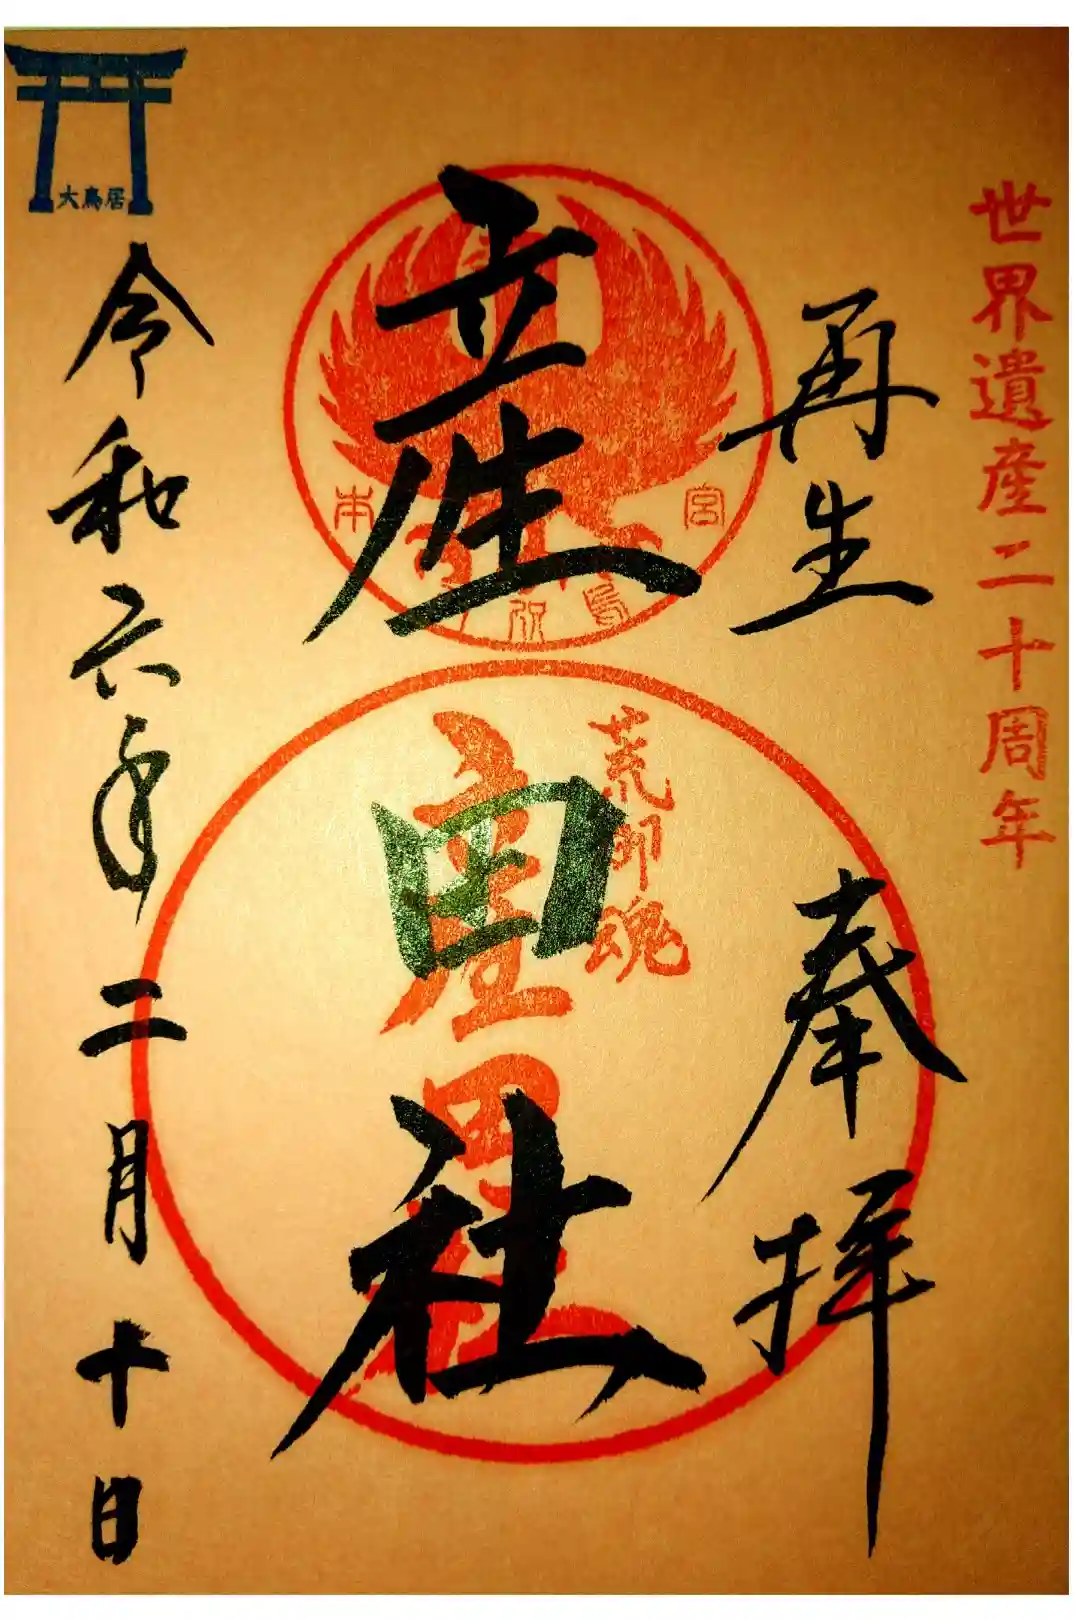 世界遺産二十周年
再生 奉拝
産田社
荒御魂
産田社
本
宮
大鳥居
令和六年二月十日